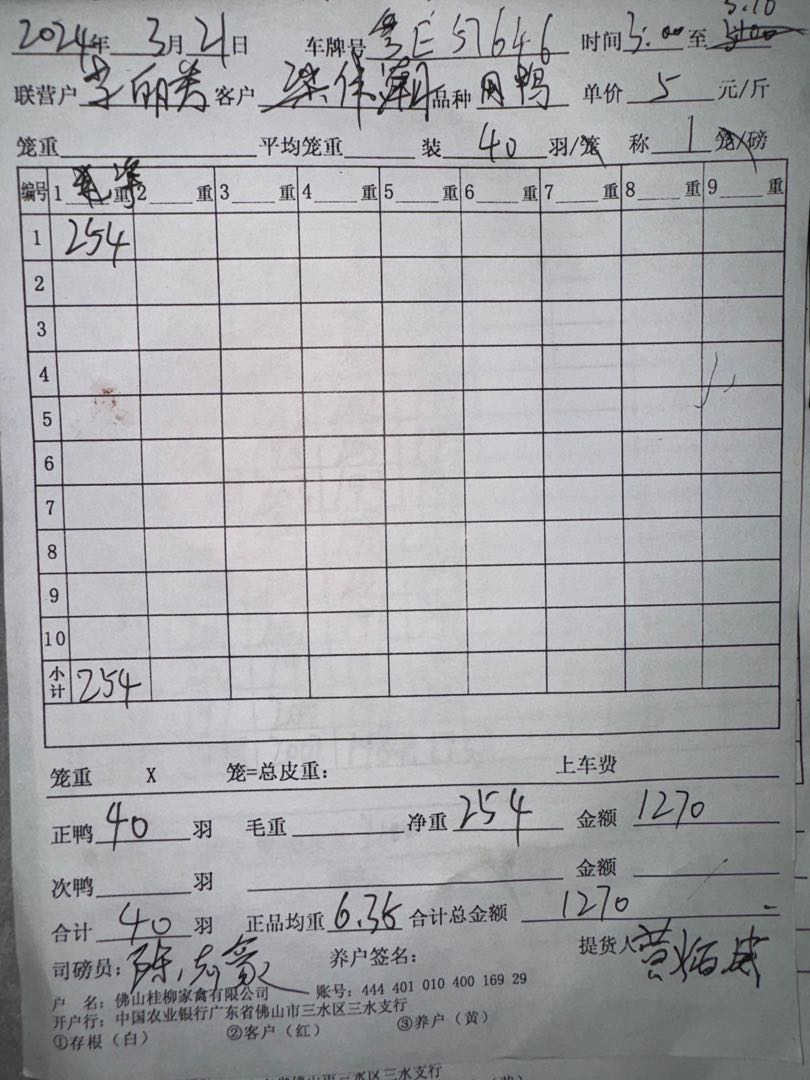 2024年 3月21日 车牌号 粤E57646 时间 5:00 至 5:10
联营户 客户 梁伟潮 品种 肉鸭 单价 5 元/斤
笼重 平均笼重 装 40 羽/笼 称 1 笼/磅
编号 1 重 2 重 3 重 4 重 5 重 6 重 7 重 8 重 9 重
1 254
2
3
4
5
6
7
8
9
10
小计 254
笼重 X 笼=总皮重: 上车费
正鸭 40 羽 毛重 净重 254 金额 1270
次鸭 羽 金额
合计 40 羽 正品均重 6.35 合计总金额 1270
司磅员: 陈志 养户签名: 提货人
户 名: 佛山桂柳家禽有限公司 账号: 444 401 010 400 169 29
开户行: 中国农业银行广东省佛山市三水区三水支行
①存根（白） ②客户（红） ③养户（黄）
佛山市三水区三水支行